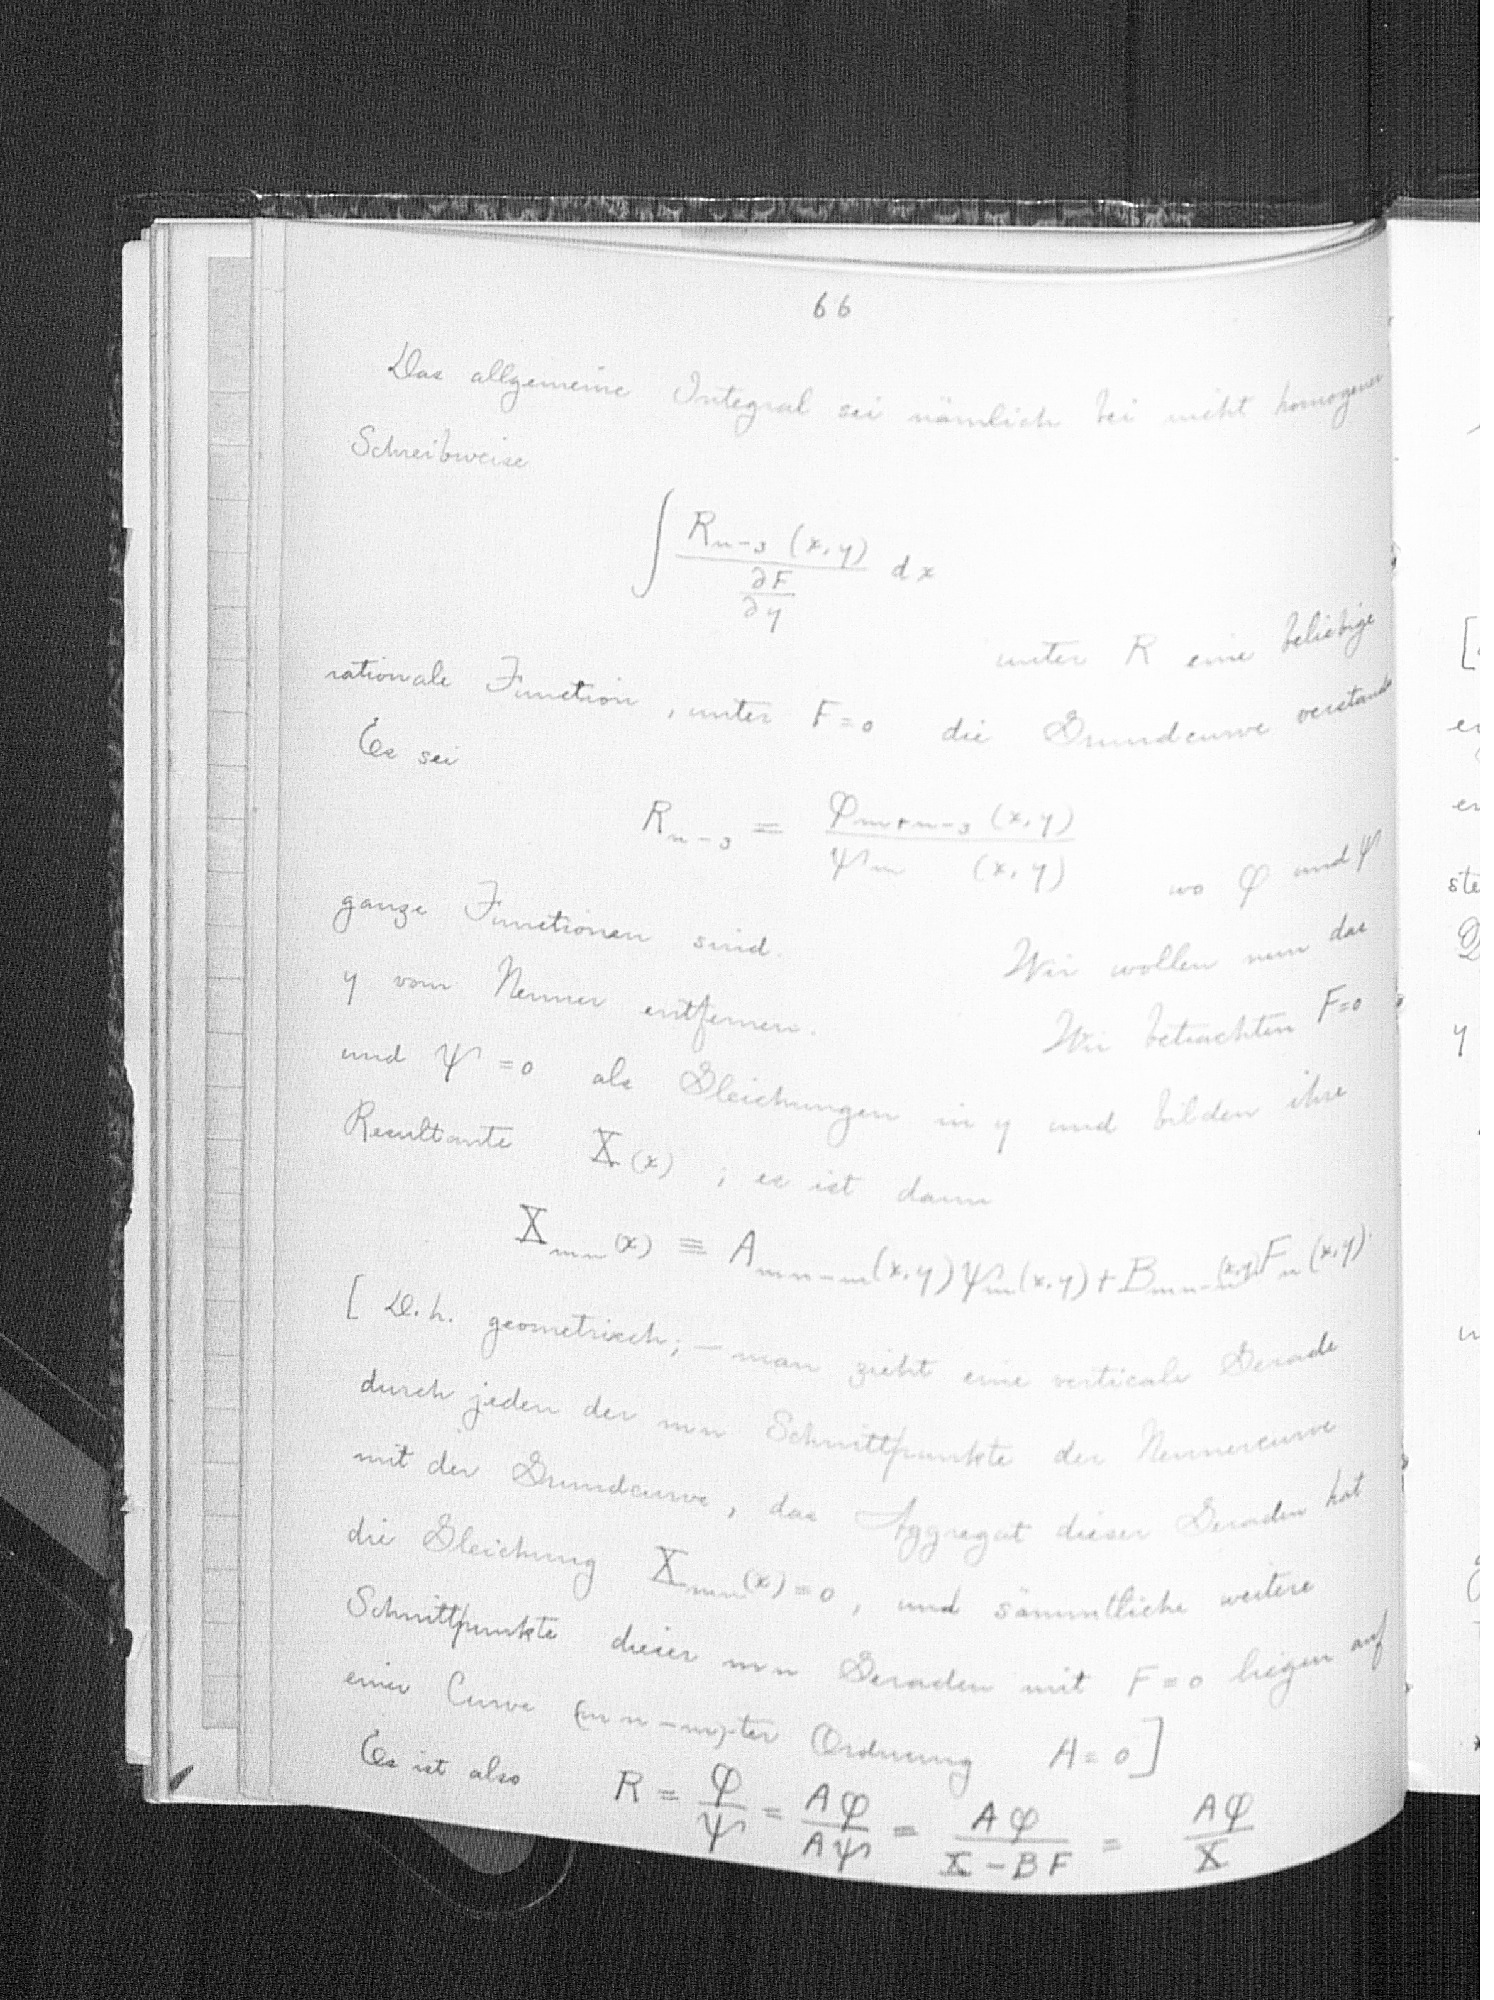 66
Das allgemeine Integral sei nämlich bei nicht homogener
Schreibweise
∫ R_{n-3} (x,y) / (∂F/∂y) dx
unter R eine beliebige
rationale Function, unter F=0 die Grundcurve verstanden
Es sei
R_{n-3} = φ_{m+n-3} (x,y) / ψ_m (x,y) wo φ und ψ
ganze Functionen sind. Wir wollen nun das
y vom Nenner entfernen. Wir betrachten F=0
und ψ=0 als Gleichungen in y und bilden ihre
Resultante X(x) ; es ist dann
X_{mn}(x) ≡ A_{mn-m}(x,y) ψ_m(x,y) + B_{mn-n}(x,y) F_n(x,y).
[ D.h. geometrisch; – man zieht eine verticale Gerade
durch jeden der mn Schnittpunkte der Nennercurve
mit der Grundcurve, das Aggregat dieser Geraden hat
die Gleichung X_{mn}(x)=0, und sämmtliche weitere
Schnittpunkte dieser mn Geraden mit F=0 liegen auf
einer Curve (mn-m)-ter Ordnung A=0 ]
Es ist also R = φ/ψ = Aφ/Aψ = Aφ/(X-BF) = Aφ/X